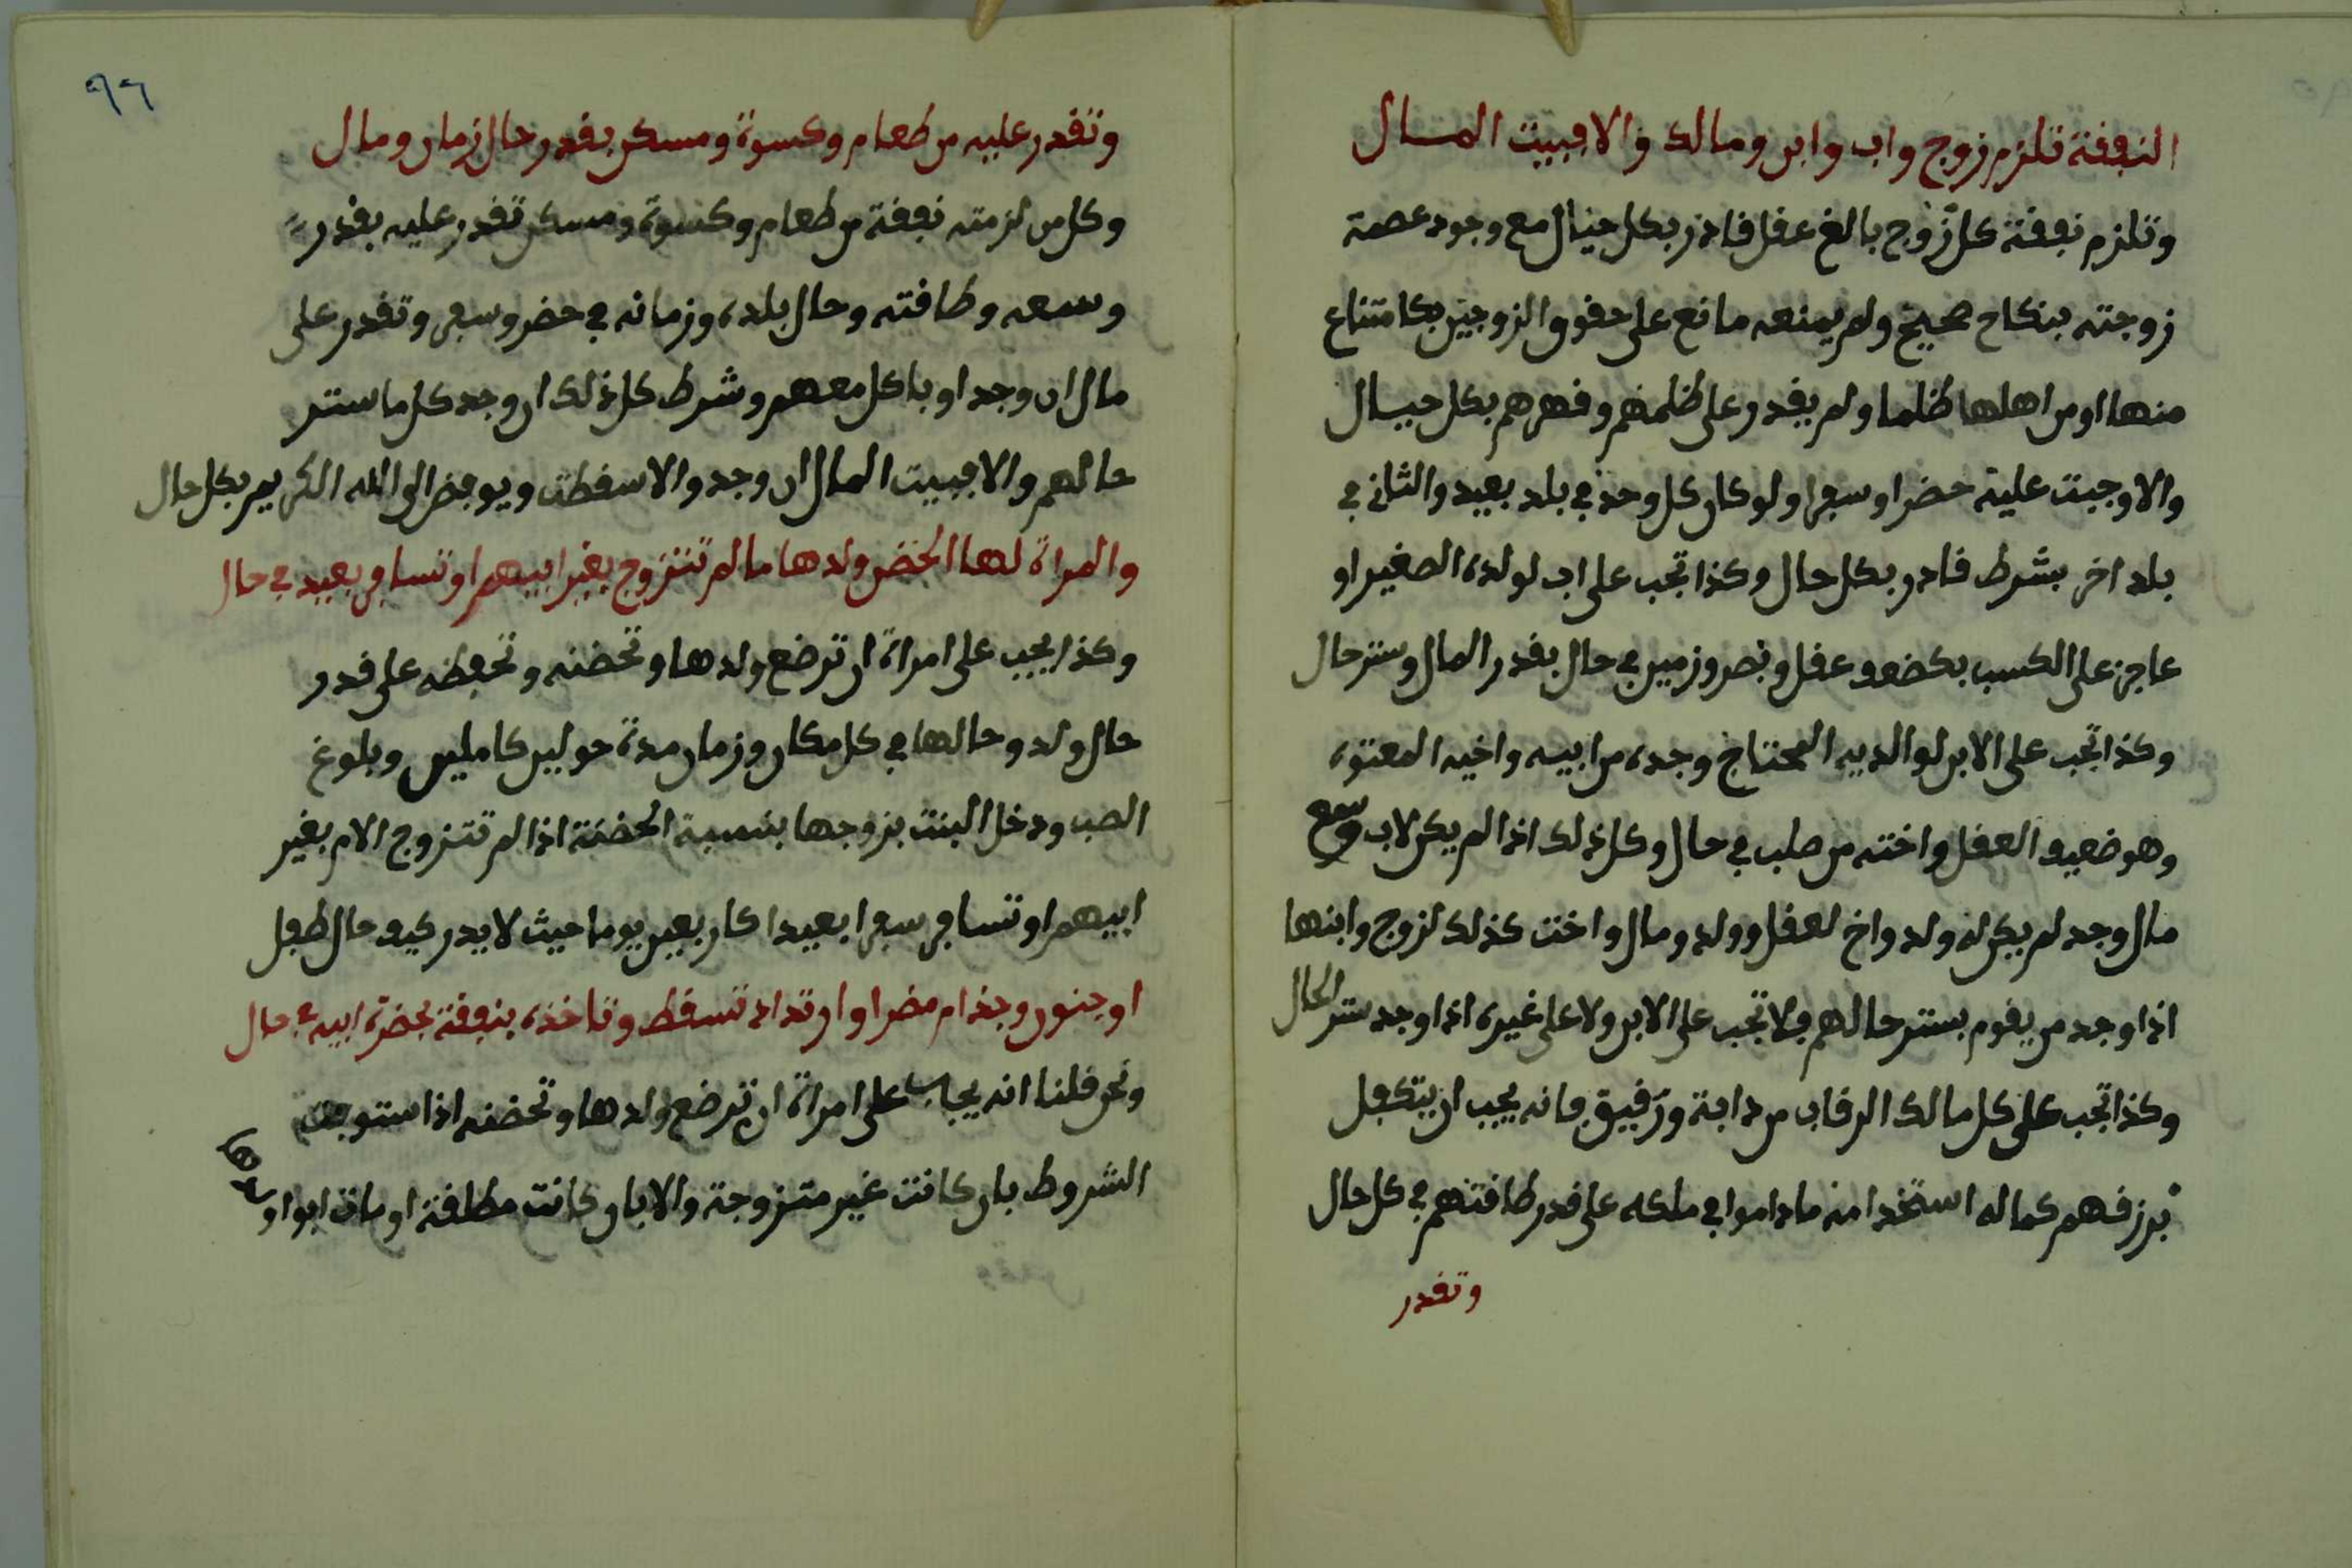 النفقة تلزم زوج واب وابن ومالك والافبيت المال
وتلزم نفقة كل زوج بالغ عقل قادر بكل حال مع وجود عصمة
زوجته بنكاح صحيح ولم يمنعه مانع على حقوق الزوجين بكامتناع
منها او من اهلها ظلما ولم يقدر على ظلمهم وقهرهم بكل حال
والا وجبت عليه حضرا وسفرا ولو كان كل وحد في بلد بعيد والثاني في
بلد اخر بشرط قادر بكل حال وكذا تجب على اب لولده الصغير او
عاجز على الكسب بكضعف عقل وبصر وزمين في حال بقدر المال وستر حال
وكذا تجب على الابن لوالديه المحتاج وجده من ابيه واخيه المعتوه
وهو ضعيف العقل واخته من صلب في حال وكل ذلك اذا لم يكن لاب وسع
مال وجد لم يكن له ولد واخ لعقل وولد ومال واخت كذلك لزوج وابنها
اذا وجد من يقوم بستر حالهم فلا تجب على الابن ولا على غيره اذا وجد ستر الحال
وكذا تجب على كل مالك الرقاب من دابة ورقيق فانه يجب ان يتكفل
برزقهم كما له استخدامنه ماداموا في ملكه على قدر طاقتهم في كل حال
وتقدر
٩٦
وتقدر عليه من طعام وكسوة ومسكن بقدر حال زمان ومال
وكل من لزمته نفقة من طعام وكسوة ومسكن تقدر عليه بقدر
وسعه وطاقته وحال بلده وزمانه في حضر وسفر وتقدر على
مال ان وجد او ياكل معهم وشرط كل ذلك ان وجد كل ما ستر
حالهم والا فبيت المال ان وجد والا سقطت ويوفض الى الله الكريم بكل حال
والمراة لها الحضن ولدها ما لم تتزوج بغير ابيهم او تسافر بعيد في حال
وكذا يجب على امراة ان ترضع ولدها وتحضنه وتحفظه على قدر
حال ولد وحالها في كل مكان وزمان مدة حولين كاملين وبلوغ
الصب ودخل البنت بزوجها بنسبة الحضنة اذا لم تتزوج الام بغير
ابيهم او تسافر سفرا بعيدا كاربعين يوما حيث لا يدر كيف حال طفل
او جنون وجذام مضر او ارتداد تسقط وتاخذه بنفقة بحضرة ابيه في حال
ونحن قلنا انه يجاب على امراة ان ترضع ولدها وتحضنه اذا ستوجت
الشروط بان كانت غير متزوجة والا بان كانت مطلقة او مات ابوا او